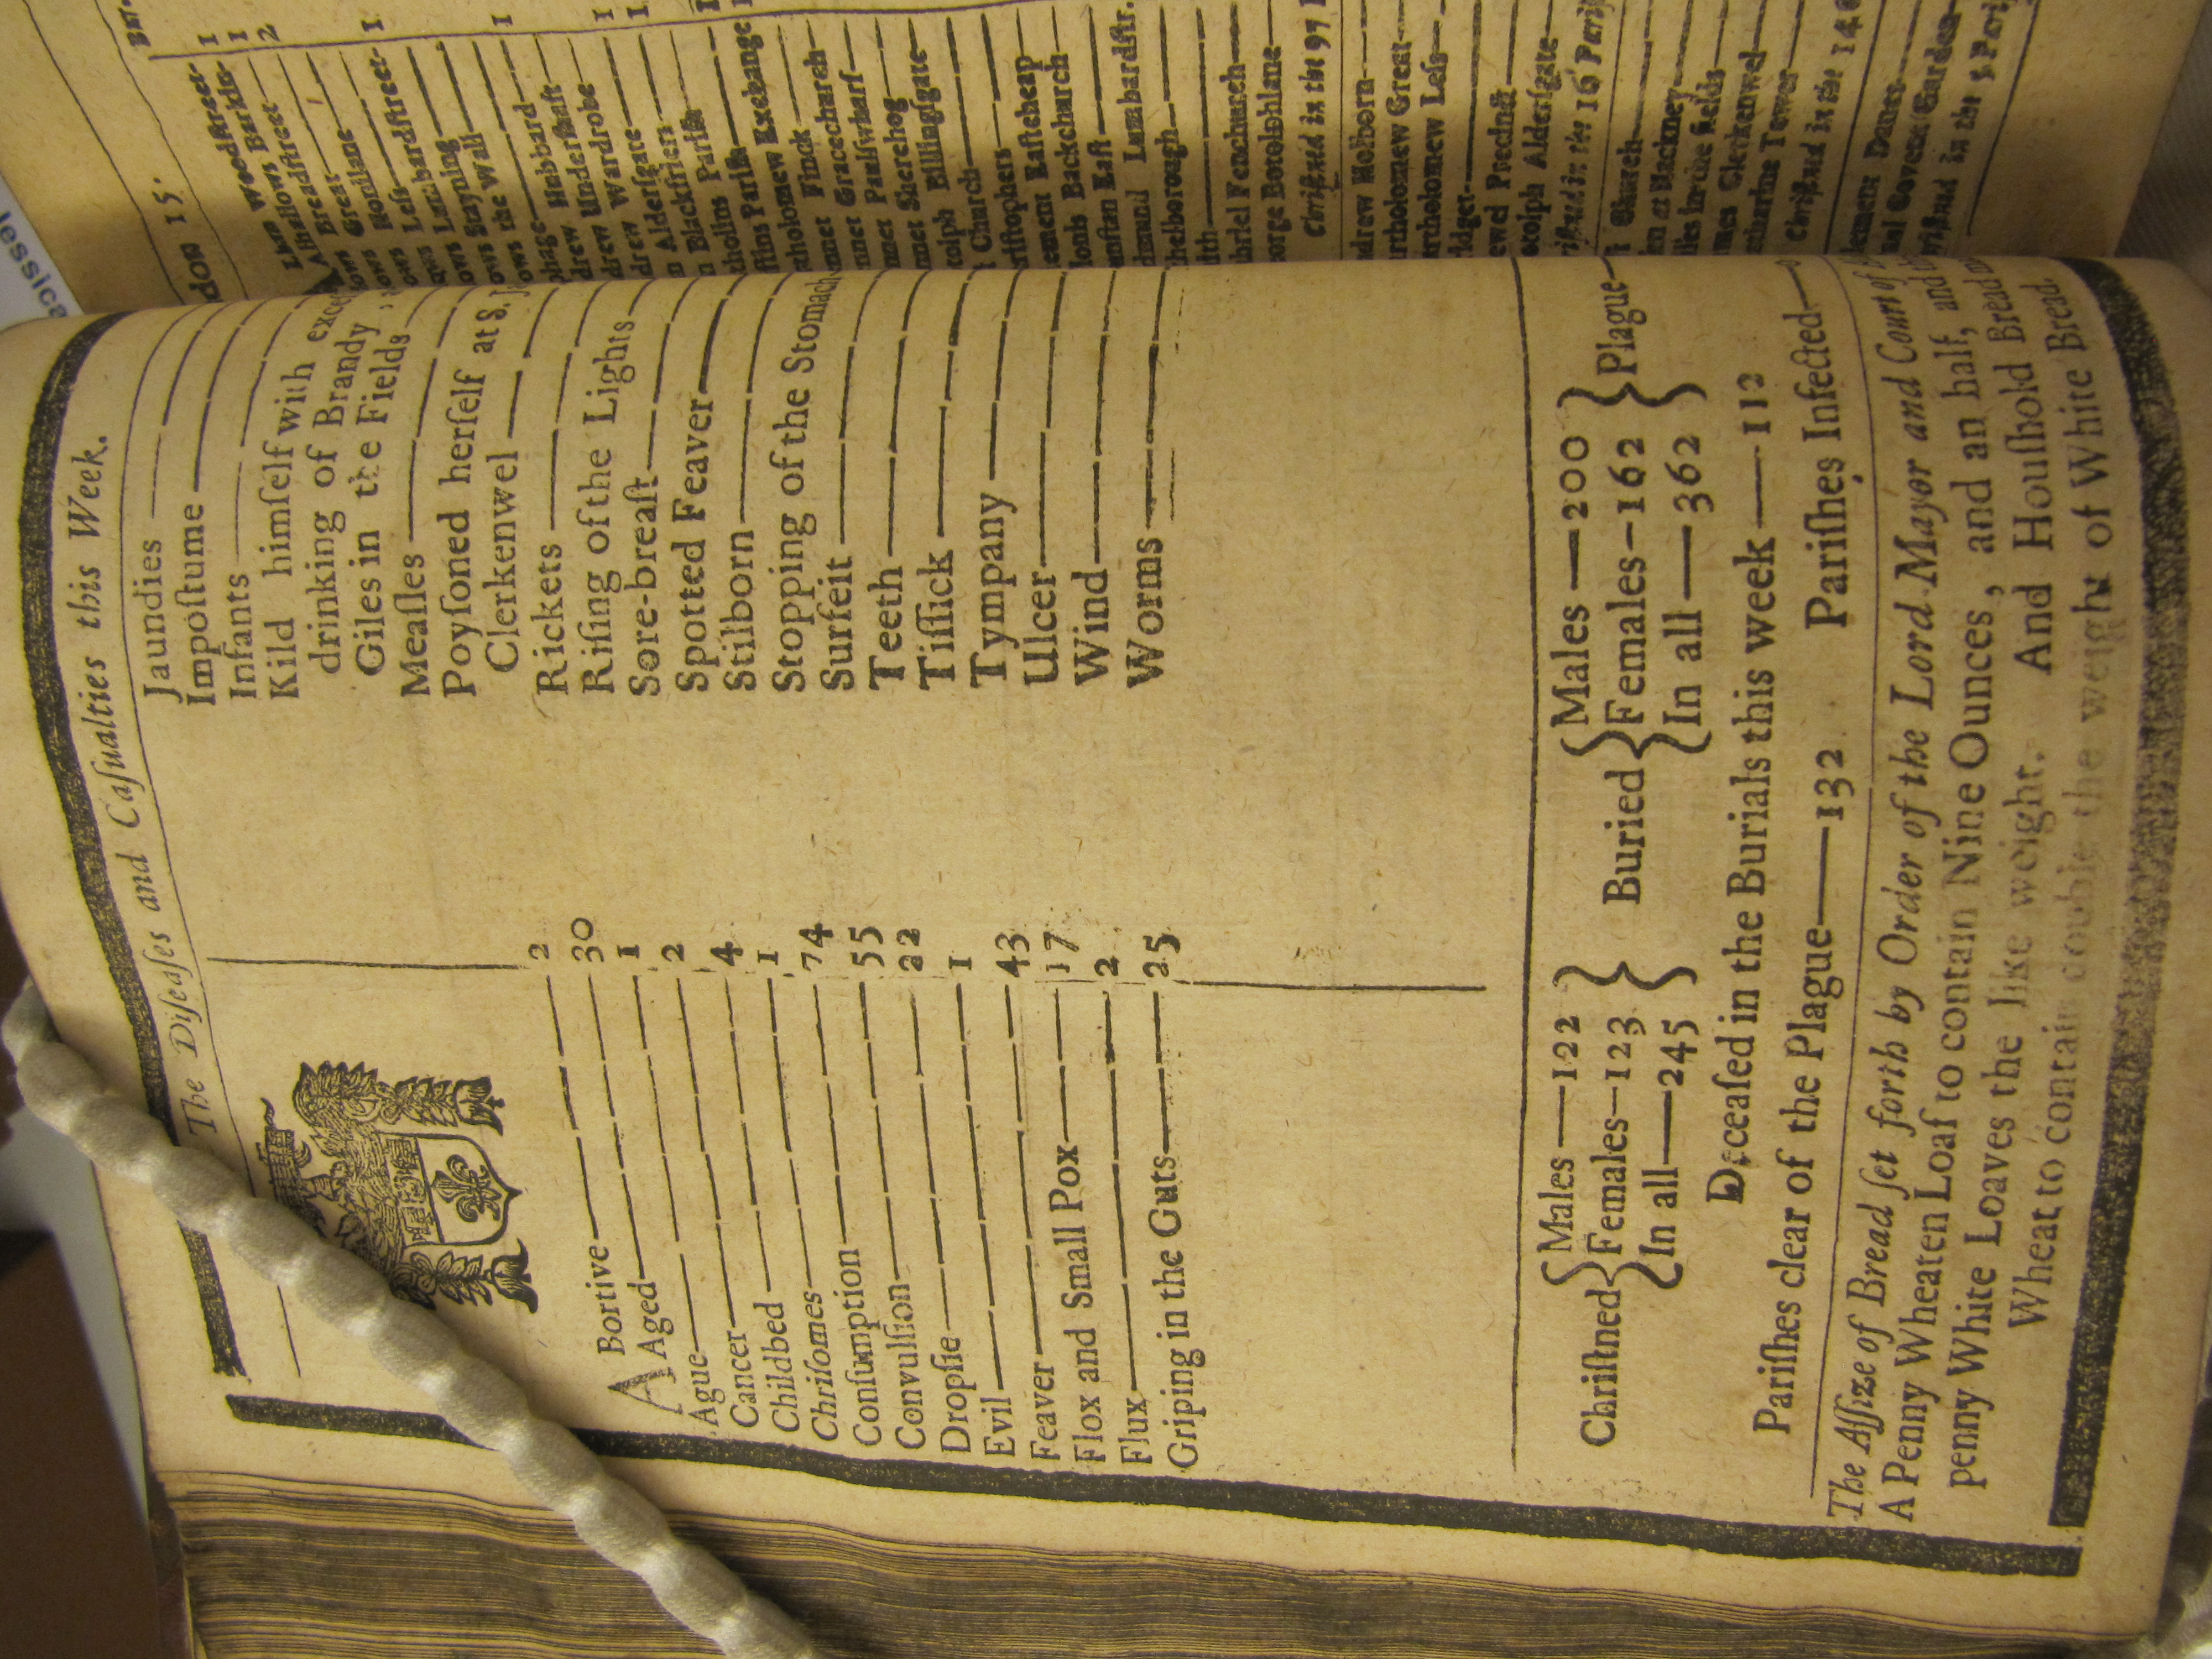 The Diſeaſes and Caſualties this Week.
A Bortive 2
Aged 30
Ague 1
Cancer 2
Childbed 4
Chriſomes 1
Conſumption 74
Convulſion 55
Dropſie 22
Evil 1
Feaver 43
Flox and Small Pox 17
Flux 2
Griping in the Guts 25
Jaundies
Impoſtume
Infants
Kild himſelf with
drinking of Brandy
Giles in the Fields
Meaſles
Poyſoned herſelf at S.
Clerkenwel
Rickets
Riſing of the Lights
Sore-breaſt
Spotted Feaver
Stilborn
Stopping of the Stomach
Surfeit
Teeth
Tiſſick
Tympany
Ulcer
Wind
Worms
Chriſtned { Males—122 Females—123 In all—245 } Buried { Males—200 Females—162 In all—362 } Plague—
Deceaſed in the Burials this week—112
Pariſhes clear of the Plague—132 Pariſhes Infected—0
The Aſſize of Bread ſet forth by Order of the Lord Mayor and Court of
A Penny Wheaten Loaf to contain Nine Ounces, and an half, and
penny White Loaves the like weight. And Houſhold Bread
Wheat to contain double the weight of White Bread.
15.
Woodſtreet 1
Barkin 1
Breadſtreet 2
Great
Honilane 1
Leſs
Lumbardſtreet
Stayning
the Wall 1
Hubbard
Underſhaft
Wardrobe 1
Alderſgate 1
Blackfriers
Pariſh 1
Pariſh Exchange 1
Finck
Gracechurch
Paulſwharf
Sherehog
Billingſgate
Church
Eaſtcheap
Backchurch
Eaſt
Lumbardſtr.
Fenchurch
Botolphlane
in the 97
Holborn
Great
Leſs
Precinct
Alderſgate
in the 16 Pariſ
Church
at Hackney
in the fields
Clerkenwel
Tower
in the 14
Danes
Covent Garden
in the 5 Pariſ
Jessica